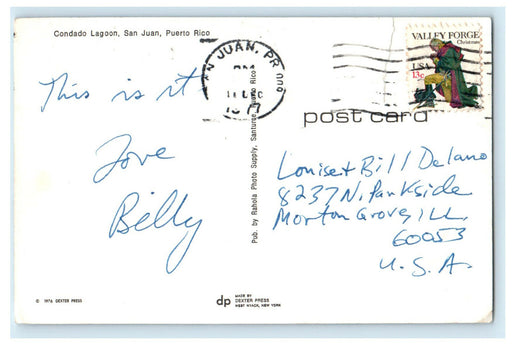 Condado Lagoon, San Juan, Puerto Rico
This is it
Love
Billy
© 1976 DEXTER PRESS
Pub. by Rahola Photo Supply, Santurce, Puerto Rico
dp
MADE BY
DEXTER PRESS
WEST NYACK, NEW YORK
SAN JUAN, PR 009
PM
11 DEC
1977
VALLEY FORGE
Christmas
USA
13c
post card
Louise + Bill Delano
8237 N. Parkside
Morton Grove, ILL
60053
U.S.A.